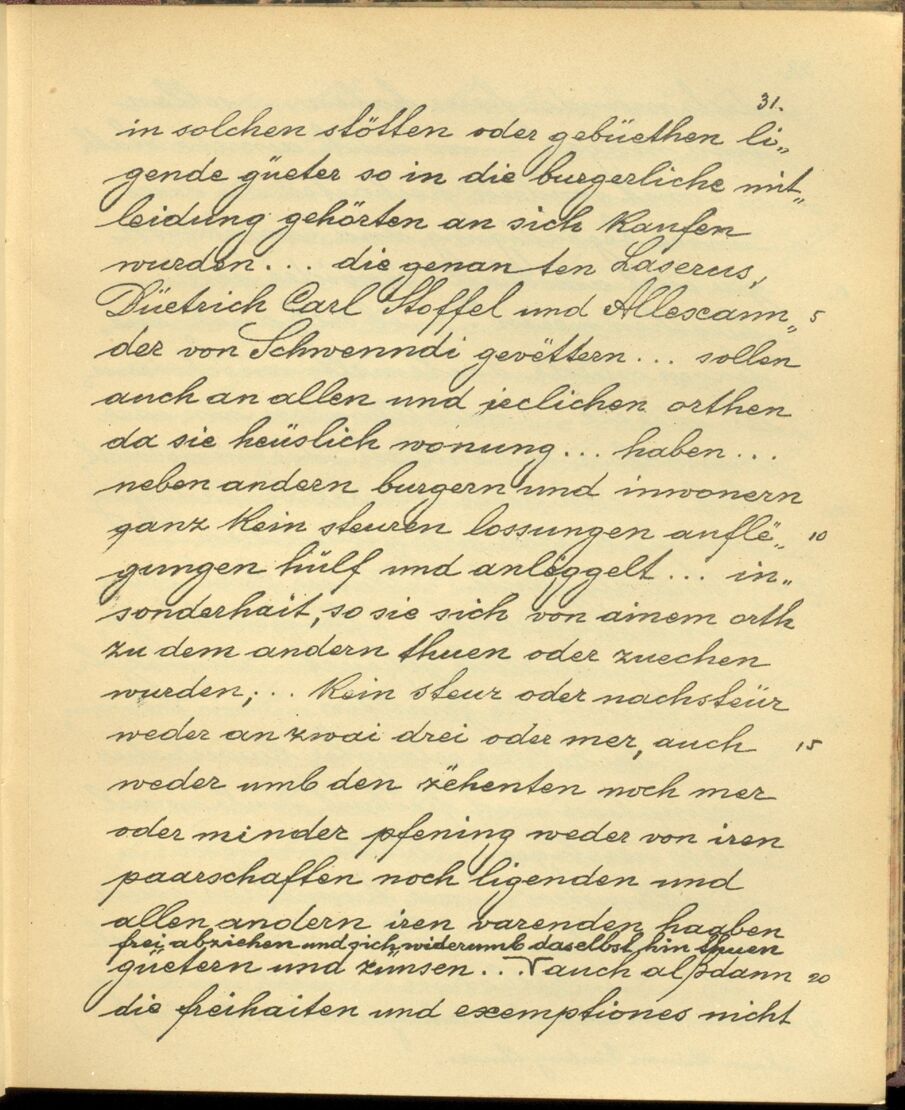 31.
in solchen stötten oder gebüethen li„
gende güeter so in die burgerliche mit„
leidung gehörten an sich kaufen
wurden... die genannten Laserus,
Düetrich Carl Stoffel und Allexann„ 5
der von Schwenndi gevëttern... sollen
auch an allen und jeclichen orthen
da sie heüslich wonung... haben...
neben andern burgern und inwonern
ganz kein steuren lossungen auflë„ 10
gungen hülf und anlëggelt... in„
sonderhait, so sie sich von ainem orth
zu dem andern thuen oder zuechen
wurden;.. kein steur oder nachsteür
weder an zwai drei oder mer, auch 15
weder umb den zëhenten noch mer
oder minder pfening weder von iren
paarschaften noch ligenden und
allen andern iren varenden haaben
frei abziehen und sich widerumb daselbst hin thuen
güetern und zünsen... auch alßdann 20
die freihaiten und exemptiones nicht